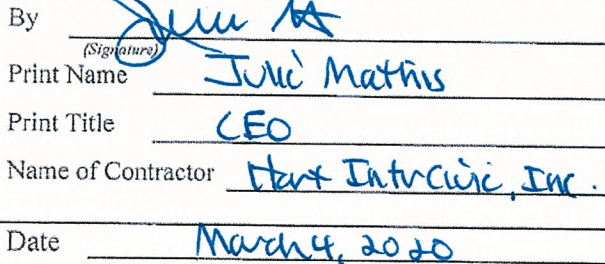 By
(Signature)
Print Name Julie Mathis
Print Title CEO
Name of Contractor Hart InterCivic, Inc.
Date March 4, 2020